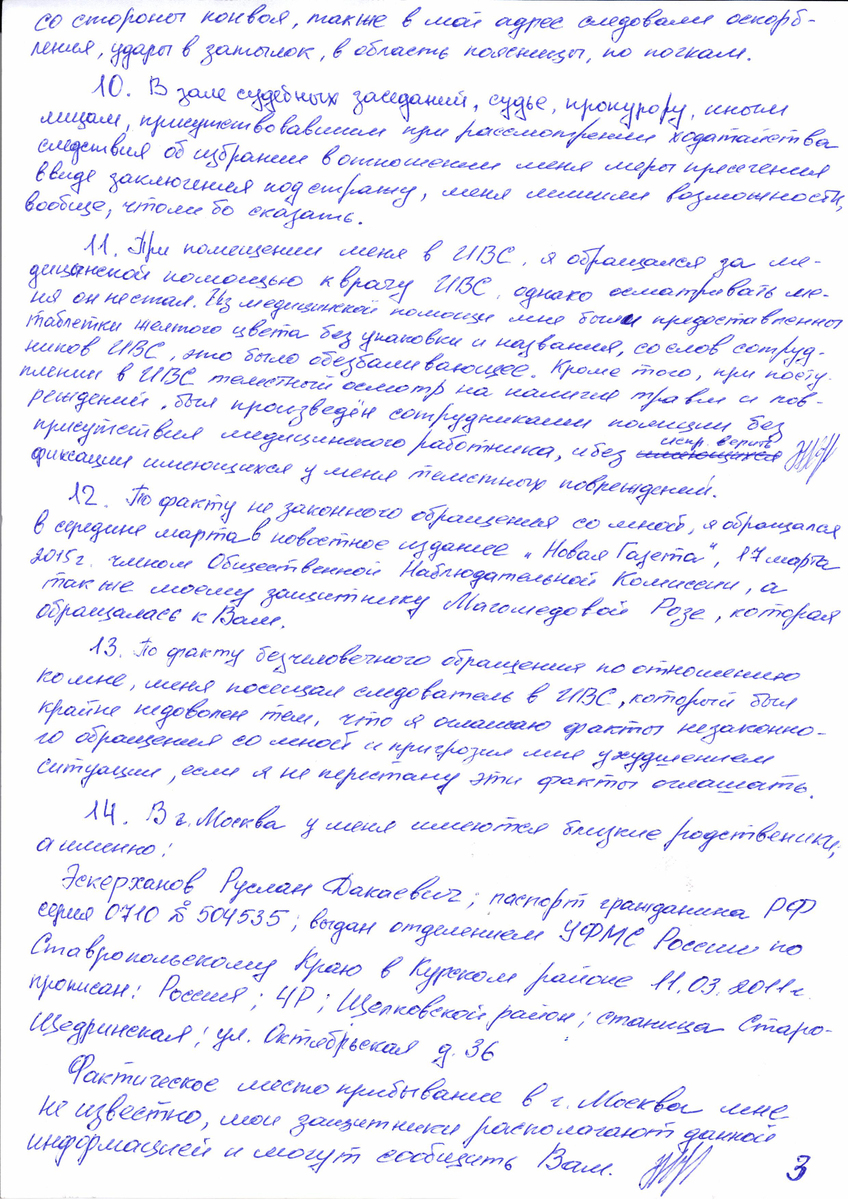 со стороны конвоя, также в мой адрес следовали оскорб-
ления, удары в затылок, в область поясницы, по почкам.
10. В зале судебных заседаний, судье, прокурору, иным
лицам, присутствовавшим при рассмотрении ходатайства
следствия об избрании в отношении меня меры пресечения
в виде заключения под стражу, меня лишили возможности,
вообще, что либо сказать.
11. При помещении меня в ИВС, я обращался за ме-
дицинской помощью к врачу ИВС, однако осматривать ме-
ня он не стал. Из медицинской помощи мне были предоставленны
таблетки желтого цвета без упаковки и названия, со слов сотруд-
ников ИВС, это было обезбаливающее. Кроме того, при посту-
плении в ИВС телестный осмотр на наличия травм и пов-
реждений, был произведён сотрудниками полиции без
присутствия медицинского работника, и без имеющихся испр. верить
фиксации имеющихся у меня телестных повреждений.
12. По факту не законного обращения со мной, я обращался
в середине марта в новостное издание „Новая Газета“, 17 марта
2015 г. членом Общественной Наблюдательной Комиссии, а
так же моему защитнику Магомедовой Розе, которая
обращалась к Вам.
13. По факту безчеловечного обращения по отношению
ко мне, меня посещал следователь в ИВС, который был
крайне недоволен тем, что я оглашаю факты незаконно-
го обращения со мной и пригрозил мне ухудшением
ситуации, если я не перестану эти факты оглашать.
14. В г. Москва у меня имеются близкие родственики,
а именно:
Эскерханов Руслан Дакаевич; паспорт гражданина РФ
серия 0710 № 504535; выдан отделением УФМС России по
Ставропольскому Краю в Курском районе 11.03.2011 г.
прописан: Россия; ЧР; Щелковской район; станица Старо-
Щедринская; ул. Октябрьская д. 36
Фактическое место прибывание в г. Москва мне
не известно, мои защитники располагают данной
информацией и могут сообщить Вам.
3